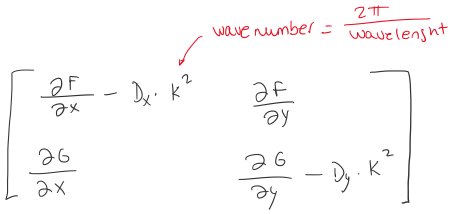 wave number = 2π / wavelenght
[ ∂F/∂x − Dx · K² ∂F/∂y
∂G/∂x ∂G/∂y − Dy · K² ]